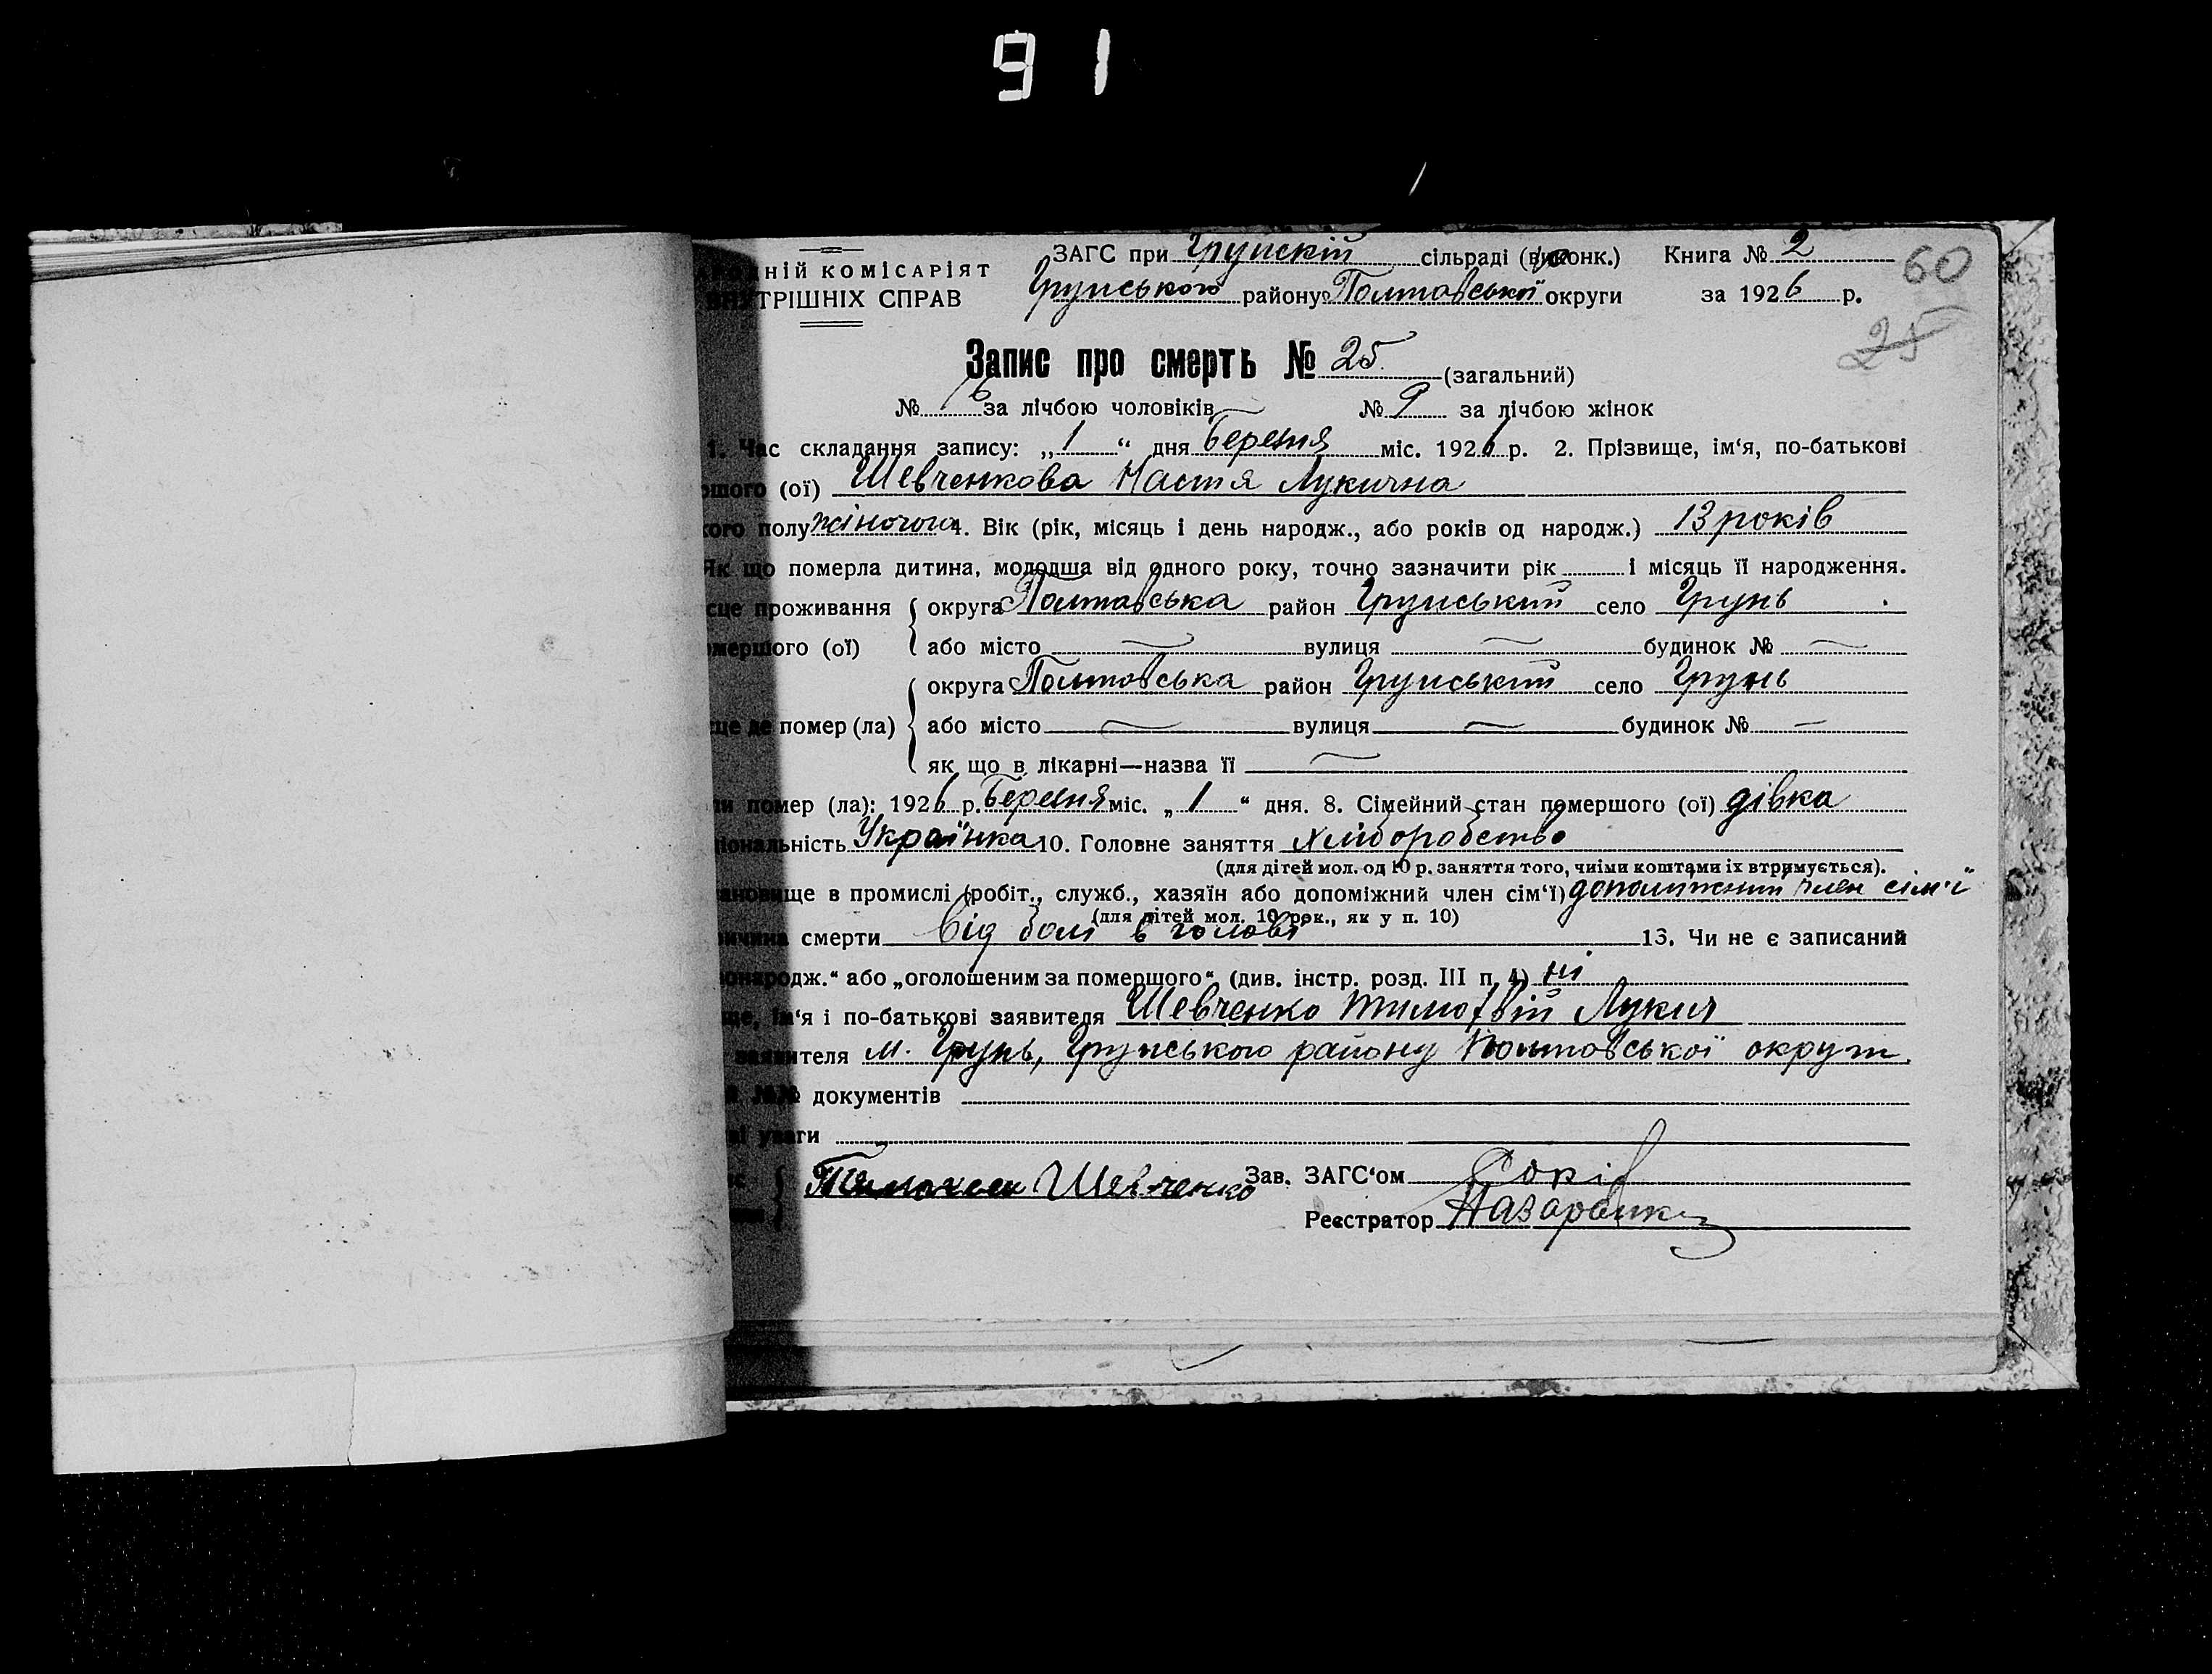 91
НІЙ КОМІСАРІЯТ
ВНУТРІШНІХ СПРАВ
ЗАГС при Грунскій сільраді (виконк.) Книга № 2
Грунського району Полтавської округи за 1926 р.
60
25
Запис про смерть № 25 (загальний)
№ 16 за лічбою чоловіків № 9 за лічбою жінок
1. Час складання запису: „1“ дня Березня міс. 1926 р. 2. Прізвище, ім‘я, по-батькові
(ої) Шевченкова Настя Лукична
полу жіночого 4. Вік (рік, місяць і день народж., або років од народж.) 13 років
Як що померла дитина, молодша від одного року, точно зазначити рік і місяць її народження.
проживання округа Полтавська район Грунський село Грунь
мершого (ої) або місто — вулиця — будинок № —
округа Полтавська район Грунський село Грунь
де помер (ла) або місто — вулиця — будинок № —
як що в лікарні—назва її —
помер (ла): 1926 р. Березня міс. „1“ дня. 8. Сімейний стан помершого (ої) дівка
ність Українка 10. Головне заняття Хліборобство
(для дітей мол. од 10 р. заняття того, чиїми коштами їх втримується).
ще в промислі (робіт., служб., хазяїн або допоміжний член сім‘ї) допоміжний член сім‘ї
(для дітей мол. 10 рок., як у п. 10)
смерти від болі в голові 13. Чи не є записаний
одж.“ або „оголошеним за помершого“ (див. інстр. розд. III п. 4) ні
ім‘я і по-батькові заявителя Шевченко Тимофвій Лукич
заявителя м. Грунь, Грунського району Полтовської округи
документів
уваги
Шевченко Зав. ЗАГС‘ом
Реєстратор